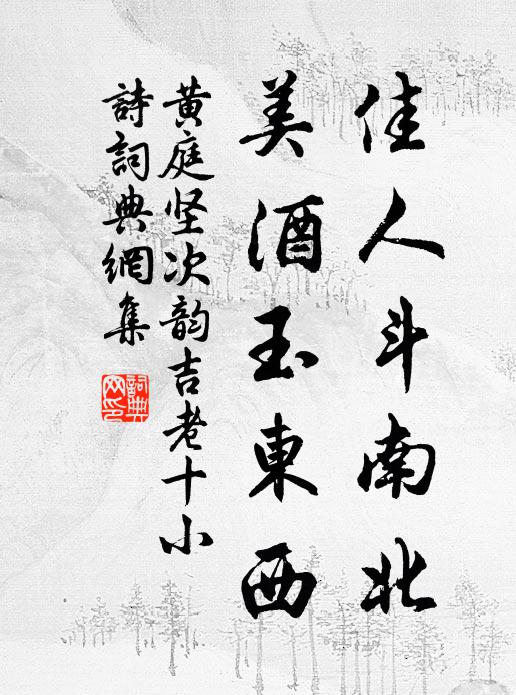 佳人斗南北
美酒玉東西
黄庭坚次韵吉老十小
詩詞典網集
詞典網印